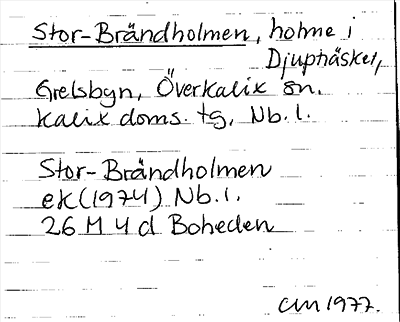 Stor-Brändholmen, holme i
Djupträsket,
Grelsbyn, Överkalix sn.
Kalix doms. tg, Nb. l.
Stor-Brändholmen
ek (1974) Nb. l.
26 M 4 d Boheden
CM 1977.